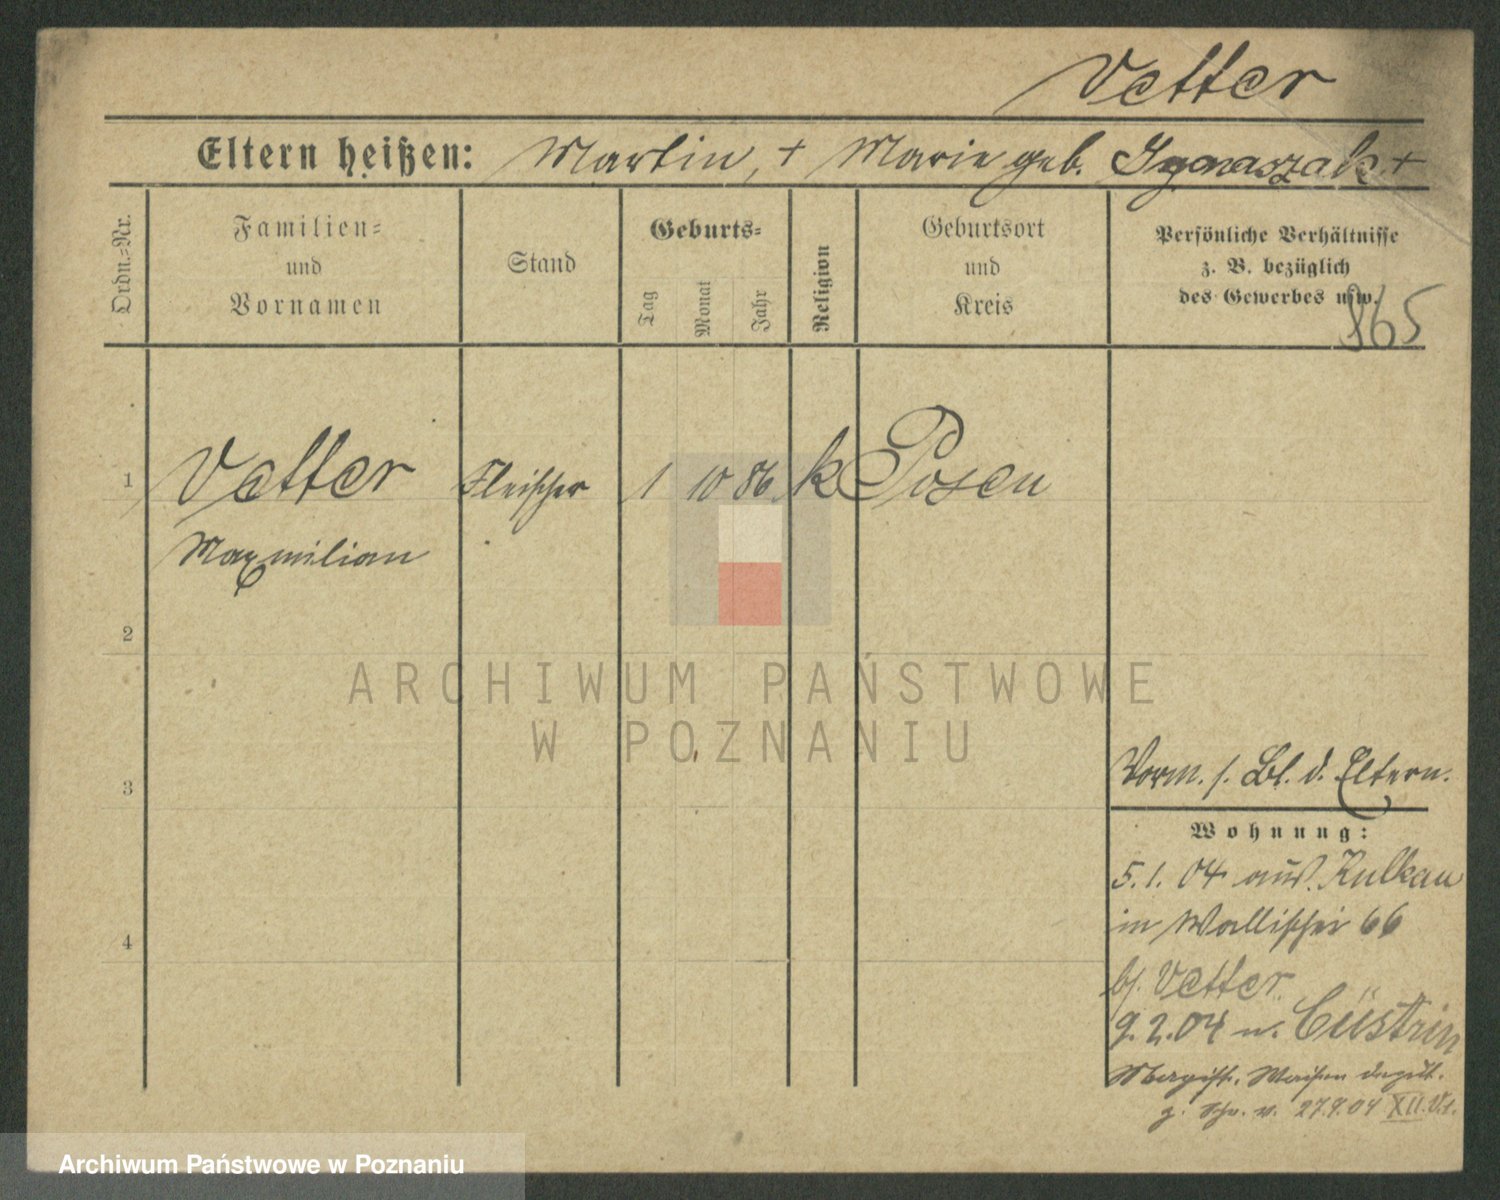 Vetter
Eltern heißen: Martin, + Marie geb. Ignaszak +
Ordn.-Nr.
Familien-
und
Vornamen
Stand
Geburts-
Tag
Monat
Jahr
Religion
Geburtsort
und
Kreis
Persönliche Verhältnisse
z. B. bezüglich
des Gewerbes usw.
865
1 Vetter Fleischer 1 10 86 k Posen
Maxmilian
2
ARCHIWUM PAŃSTWOWE
W POZNANIU
3
Vorm. s. Bl. d. Eltern.
Wohnung:
5.1.04 aus Kulkau
in Wallischei 66
4
bj. Vetter
9.2.04 n. Cüstrin
Magist. Waisen deput.
z. Schr. v. 27.9.04 XII.
Archiwum Państwowe w Poznaniu